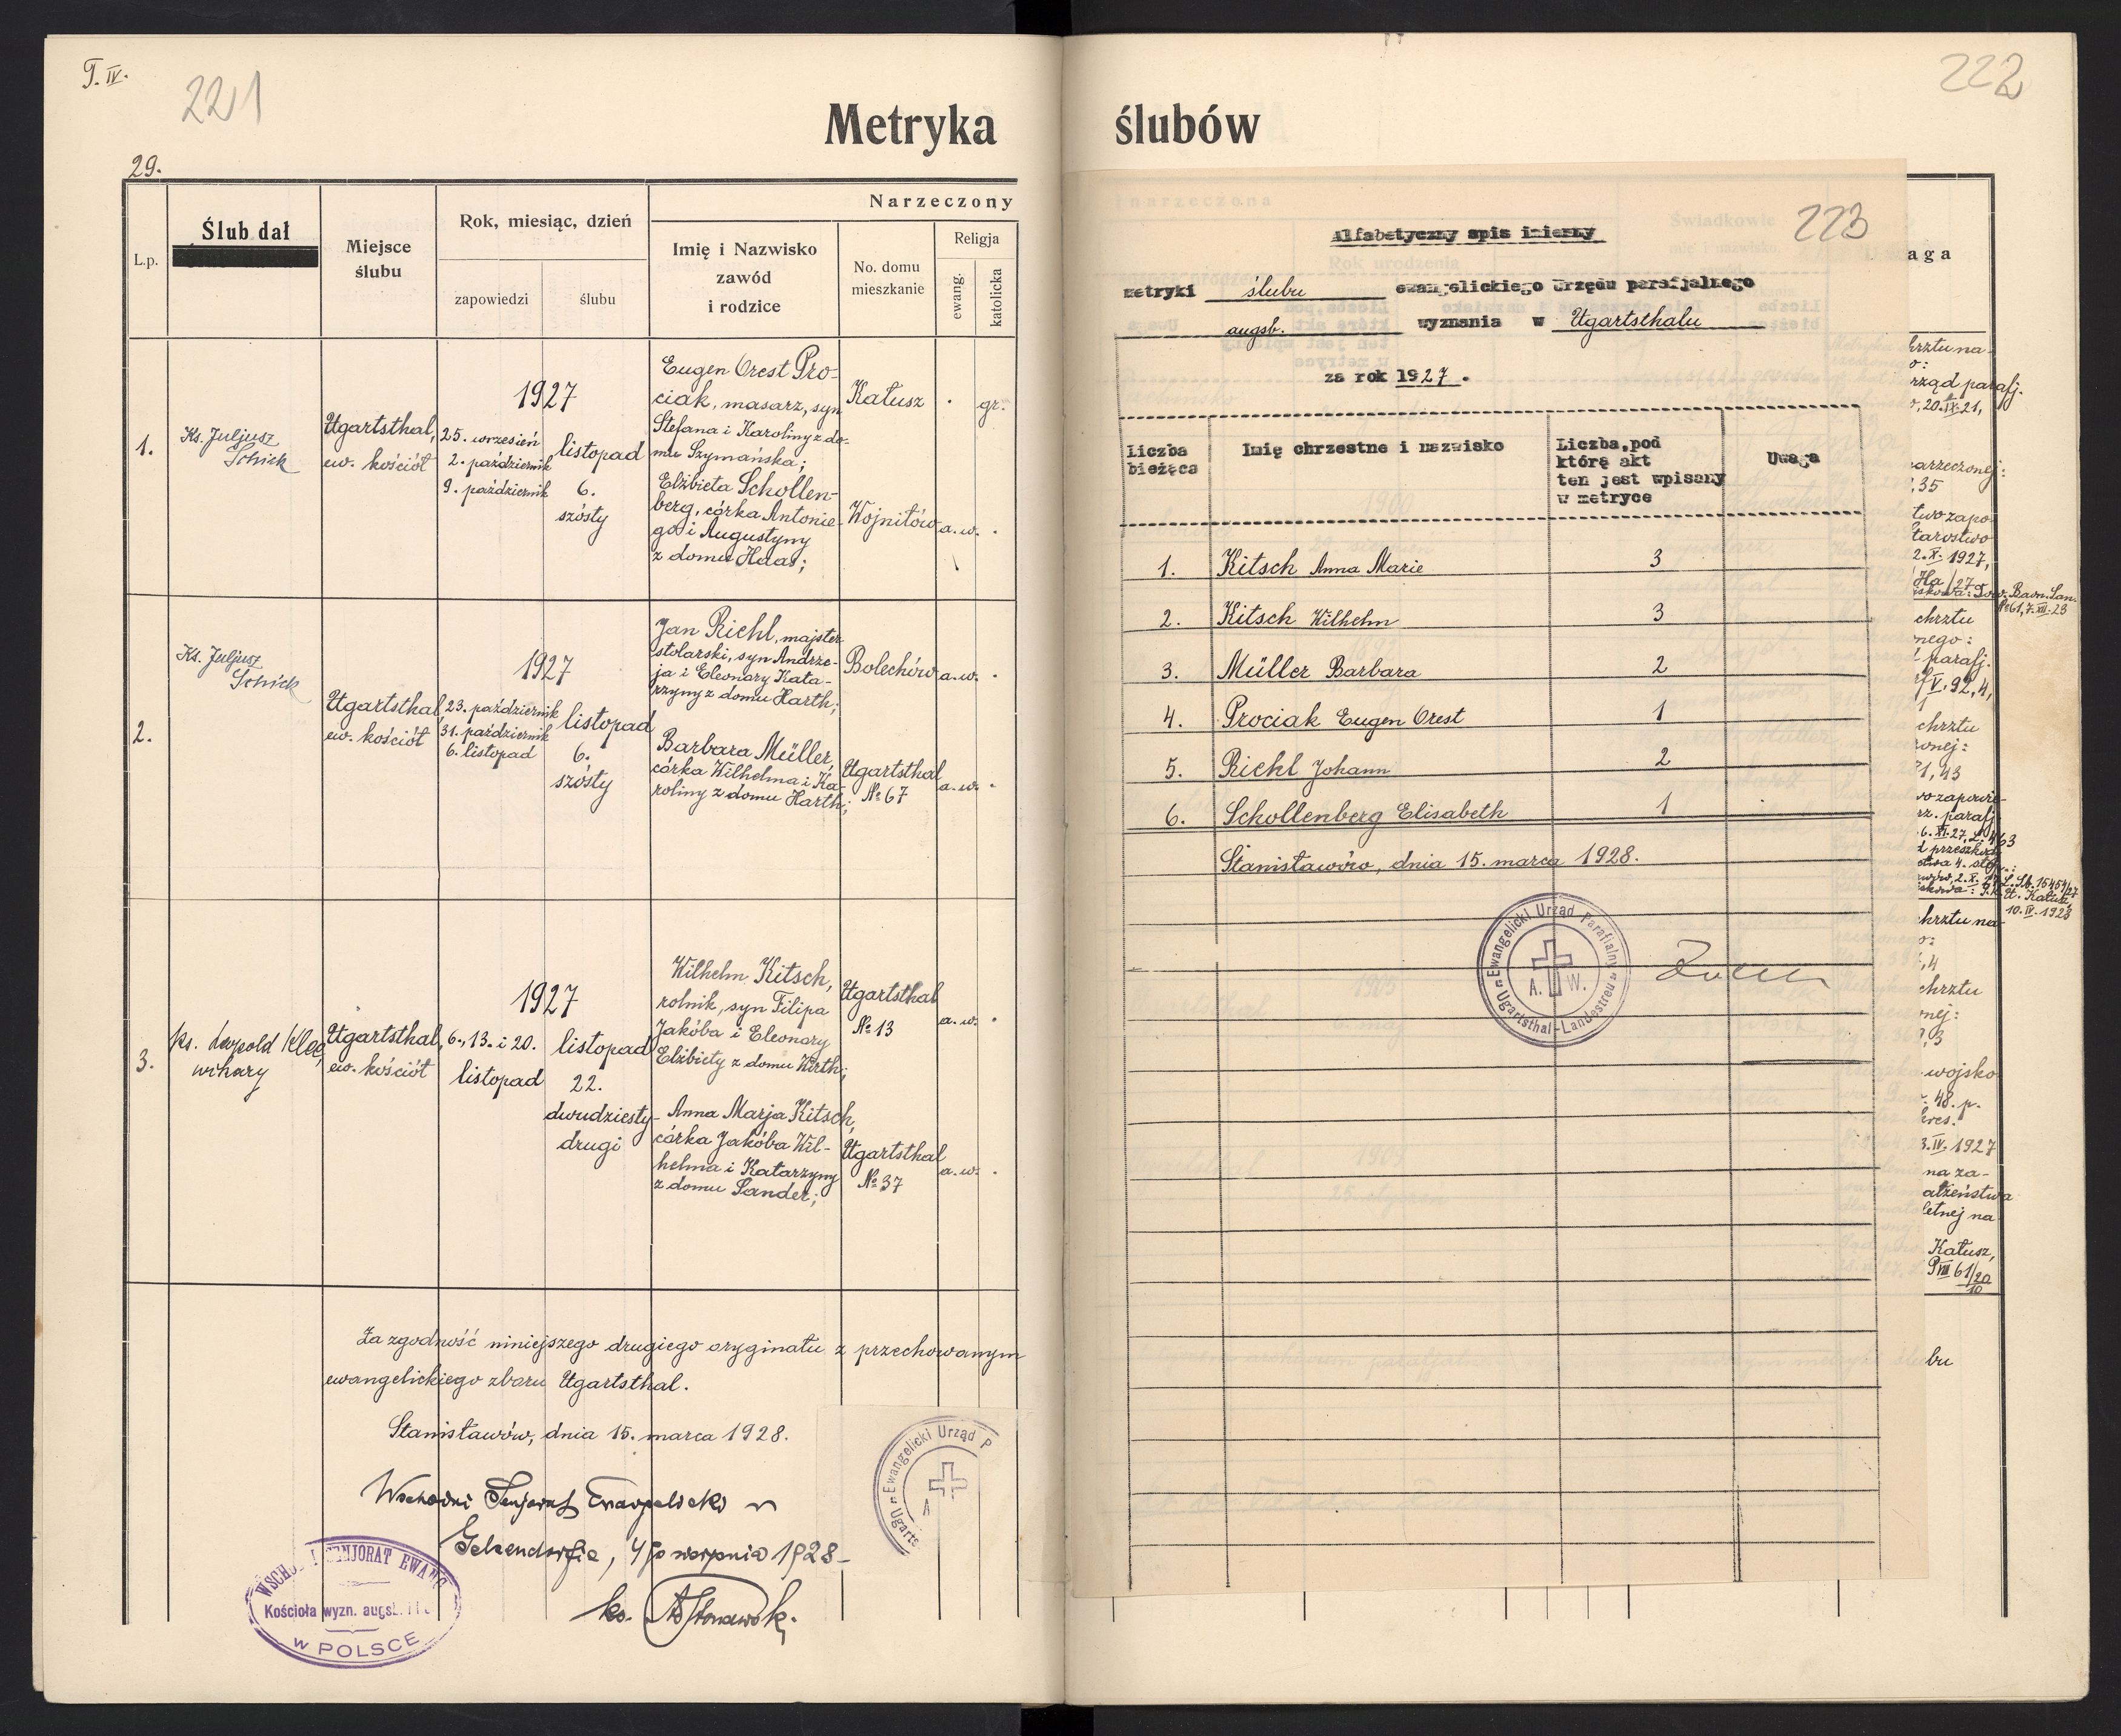 T. IV.
221
Metryka
29.
L.p.
Ślub dał
Miejsce
ślubu
Rok, miesiąc, dzień
zapowiedzi
ślubu
Narzeczony
Imię i Nazwisko
zawód
i rodzice
No. domu
mieszkanie
Religja
ewang.
katolicka
1.
Ks. Juljusz
Schick
Ugartsthal,
ew. kościół
1927
25. wrzesień
2. październik
9. październik
listopad
6.
szósty
Eugen Orest Pro-
ciak, masarz, syn
Stefana i Karoliny z do-
mu Szymańska;
Kałusz
.
gr.
Elżbieta Schollen-
berg, córka Antonie-
go i Augustyny
z domu Haas;
Wojniłów
a.w.
.
2.
Ks. Juljusz
Schick
Ugartsthal,
ew. kościół
1927
23. październik
31. październik
6. listopad
listopad
6.
szósty
Jan Riehl, majster
stolarski, syn Andrze-
ja i Eleonory Kata-
rzyny z domu Harth;
Bolechów
a.w.
.
Barbara Müller,
córka Wilhelma i Ka-
roliny z domu Harth;
Ugartsthal
№ 67
a.w.
.
3.
ks. Leopold Klee,
wikary
Ugartsthal,
ew. kościół
1927
6., 13. i 20.
listopad
listopad
22.
dwudziesty-
drugi
Wilhelm Kitsch,
rolnik, syn Filipa
Jakóba i Eleonory
Elżbiety z domu Wirth;
Ugartsthal
№ 13
a.w.
.
Anna Marja Kitsch,
córka Jakóba Wil-
helma i Katarzyny
z domu Sander;
Ugartsthal
№ 37
a.w.
.
Za zgodność niniejszego drugiego oryginału z przechowanym
ewangelickiego zboru Ugartsthal.
Stanisławów, dnia 15. marca 1928.
Wschodni Senjorat Ewangelicki w
Gelsendorfie, 4go sierpnia 1928-
ks.
WSCHODNI SENJORAT EWANG
Kościoła wyzn. augsb. i
w POLSCE
Ewangelicki Urząd P
A
Ugarts
222
ślubów
223
Alfabetyczny spis imienny
metryki ślubu ewangelickiego Urzędu parafjalnego
augsb. wyznania w Ugartsthalu
za rok 1927.
Liczba
bieżąca
Imię chrzestne i nazwisko
Liczba, pod
którą akt
ten jest wpisany
w metryce
Uwaga
1. Kitsch Anna Marie 3
2. Kitsch Wilhelm 3
3. Müller Barbara 2
4. Prociak Eugen Orest 1
5. Riehl Johann 2
6. Schollenberg Elisabeth 1
Stanisławów, dnia 15. marca 1928.
Ewangelicki Urząd Parafialny
A. W.
Ugartsthal-Landestreu
aga
hrztu na-
o:
rząd parafj.
20.IX.21,
arzeczonej:
,35
two zapo-
tarostwo
2.X.1927,
chrztu
nego:
parafj.
V.92,4,
chrztu
onej:
1,43
6.XI.27, L.463
10.IV.1923
hrztu na-
o:
,4
chrztu
nej:
,3
wojsko-
48. p.
kres.
3.IV.1927
na za-
ałżeństwa
letnej na-
Kałusz,
P VIII 61/20
10
bu